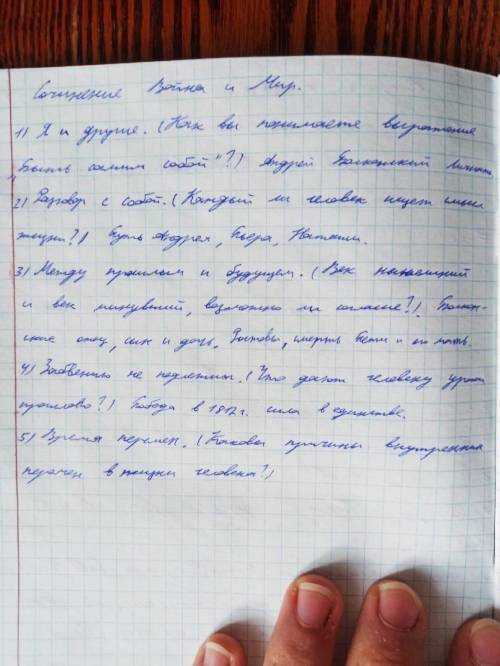 Сочинение Война и Мир.
1) Я и другие. (Как вы понимаете выражение
„Быть самим собой"?) Андрей Болконский
2) Разговор с собой. (Каждый ли человек ищет смысл
жизни?) Путь Андрея, Пьера, Наташи.
3) Между прошлым и будущем. (Век нынешний
и век минувший, возможно ли согласие?). Болкон-
ские отец, сын и дочь, Ростовы, смерть Пети и его мать.
4) Забвению не подлежит. (Что дают человеку уроки
прошлого?) Победа в 1812г. сила в единстве.
5) Время перемен. (Каковы причины внутренних
перемен в жизни человека?)